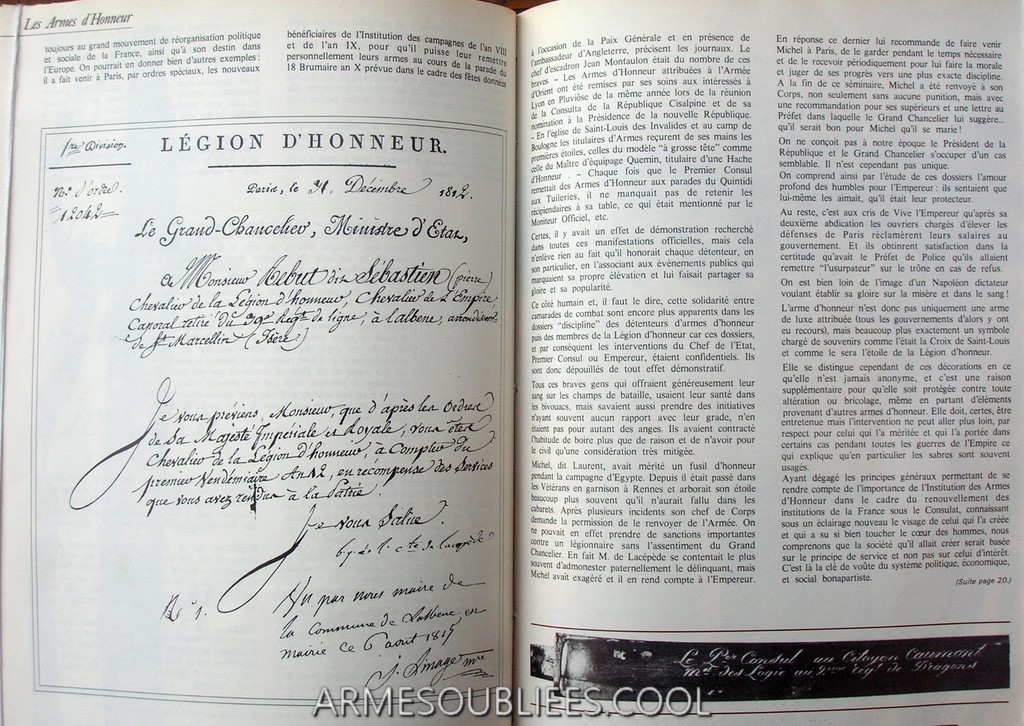 Les Armes d'Honneur
toujours au grand mouvement de réorganisation politique
et sociale de la France, ainsi qu'à son destin dans
l'Europe. On pourrait en donner bien d'autres exemples :
il a fait venir à Paris, par ordres spéciaux, les nouveaux
bénéficiaires de l'Institution des campagnes de l'an VIII
et de l'an IX, pour qu'il puisse leur remettre
personnellement leurs armes au cours de la parade du
18 Brumaire an X prévue dans le cadre des fêtes données
1re Division.
LÉGION D'HONNEUR.
No. d'ordre.
12042
Paris, le 31 Décembre 1812.
Le Grand-Chancelier, Ministre d'Etat,
A Monsieur Rebut dit Sébastien (pierre)
Chevalier de la Légion d'honneur, Chevalier de L'Empire,
Caporal retiré du 39e Régt de ligne, à lalbene, arrondissemt
de St Marcellin (Isère)
Je vous préviens, Monsieur, que d'après les Ordres
de Sa Majesté Impériale et Royale, vous êtes
Chevalier de la Légion d'honneur, à Compter du
premier Vendémiaire An 12, en récompense des Services
que vous avez rendus à la Patrie.
Je vous Salue.
cte de lacepède
No 1.
Vu par nous maire de
la Commune de Lalbene en
mairie ce 6 aout 1815
mre
à l'occasion de la Paix Générale et en présence de
l'ambassadeur d'Angleterre, précisent les journaux. Le
chef d'escadron Jean Montaulon était du nombre de ces
braves. – Les Armes d'Honneur attribuées à l'Armée
d'Orient ont été remises par ses soins aux intéressés à
Lyon en Pluviôse de la même année lors de la réunion
de la Consulta de la République Cisalpine et de sa
nomination à la Présidence de la nouvelle République.
– En l'église de Saint-Louis des Invalides et au camp de
Boulogne les titulaires d'Armes reçurent de ses mains les
premières étoiles, celles du modèle “à grosse tête” comme
celle du Maître d'équipage Quemin, titulaire d'une Hache
d'Honneur. – Chaque fois que le Premier Consul
remettait des Armes d'Honneur aux parades du Quintidi
aux Tuileries, il ne manquait pas de retenir les
récipiendaires à sa table, ce qui était mentionné par le
Moniteur Officiel, etc.
Certes, il y avait un effet de démonstration recherché
dans toutes ces manifestations officielles, mais cela
n'enlève rien au fait qu'il honorait chaque détenteur, en
son particulier, en l'associant aux événements publics qui
marquaient sa propre élévation et lui faisait partager sa
gloire et sa popularité.
Ce côté humain et, il faut le dire, cette solidarité entre
camarades de combat sont encore plus apparents dans les
dossiers “discipline” des détenteurs d'armes d'honneur
puis des membres de la Légion d'honneur car ces dossiers,
et par conséquent les interventions du Chef de l'Etat,
Premier Consul ou Empereur, étaient confidentiels. Ils
sont donc dépouillés de tout effet démonstratif.
Tous ces braves gens qui offraient généreusement leur
sang sur les champs de bataille, usaient leur santé dans
les bivouacs, mais savaient aussi prendre des initiatives
n'ayant souvent aucun rapport avec leur grade, n'en
étaient pas pour autant des anges. Ils avaient contracté
l'habitude de boire plus que de raison et de n'avoir pour
le civil qu'une considération très mitigée.
Michel, dit Laurent, avait mérité un fusil d'honneur
pendant la campagne d'Egypte. Depuis il était passé dans
les Vétérans en garnison à Rennes et arborait son étoile
beaucoup plus souvent qu'il n'aurait fallu dans les
cabarets. Après plusieurs incidents son chef de Corps
demande la permission de le renvoyer de l'Armée. On
ne pouvait en effet prendre de sanctions importantes
contre un légionnaire sans l'assentiment du Grand
Chancelier. En fait M. de Lacépède se contentait le plus
souvent d'admonester paternellement le délinquant, mais
Michel avait exagéré et il en rend compte à l'Empereur.
En réponse ce dernier lui recommande de faire venir
Michel à Paris, de le garder pendant le temps nécessaire
et de le recevoir périodiquement pour lui faire la morale
et juger de ses progrès vers une plus exacte discipline.
A la fin de ce séminaire, Michel a été renvoyé à son
Corps, non seulement sans aucune punition, mais avec
une recommandation pour ses supérieurs et une lettre au
Préfet dans laquelle le Grand Chancelier lui suggère...
qu'il serait bon pour Michel qu'il se marie !
On ne conçoit pas à notre époque le Président de la
République et le Grand Chancelier s'occuper d'un cas
semblable. Il n'est cependant pas unique.
On comprend ainsi par l'étude de ces dossiers l'amour
profond des humbles pour l'Empereur : ils sentaient que
lui-même les aimait, qu'il était leur protecteur.
Au reste, c'est aux cris de Vive l'Empereur qu'après sa
deuxième abdication les ouvriers chargés d'élever les
défenses de Paris réclamèrent leurs salaires au
gouvernement. Et ils obtinrent satisfaction dans la
certitude qu'avait le Préfet de Police qu'ils allaient
remettre “l'usurpateur” sur le trône en cas de refus.
On est bien loin de l'image d'un Napoléon dictateur
voulant établir sa gloire sur la misère et dans le sang !
L'arme d'honneur n'est donc pas uniquement une arme
de luxe attribuée (tous les gouvernements d'alors y ont
eu recours), mais beaucoup plus exactement un symbole
chargé de souvenirs comme l'était la Croix de Saint-Louis
et comme le sera l'étoile de la Légion d'honneur.
Elle se distingue cependant de ces décorations en ce
qu'elle n'est jamais anonyme, et c'est une raison
supplémentaire pour qu'elle soit protégée contre toute
altération ou bricolage, même en partant d'éléments
provenant d'autres armes d'honneur. Elle doit, certes, être
entretenue mais l'intervention ne peut aller plus loin, par
respect pour celui qui l'a méritée et qui l'a portée dans
certains cas pendant toutes les guerres de l'Empire ce
qui explique qu'en particulier les sabres sont souvent
usagés.
Ayant dégagé les principes généraux permettant de se
rendre compte de l'importance de l'Institution des Armes
d'Honneur dans le cadre du renouvellement des
institutions de la France sous le Consulat, connaissant
sous un éclairage nouveau le visage de celui qui l'a créée
et qui a su si bien toucher le cœur des hommes, nous
comprenons que la société qu'il allait créer serait basée
sur le principe de service et non pas sur celui d'intérêt.
C'est là la clé de voûte du système politique, économique,
et social bonapartiste.
(Suite page 20.)
Le Per Consul au Citoyen Caumont
Mal des Logis au 9eme régt de Dragons
ARMESOUBLIEES.COOL